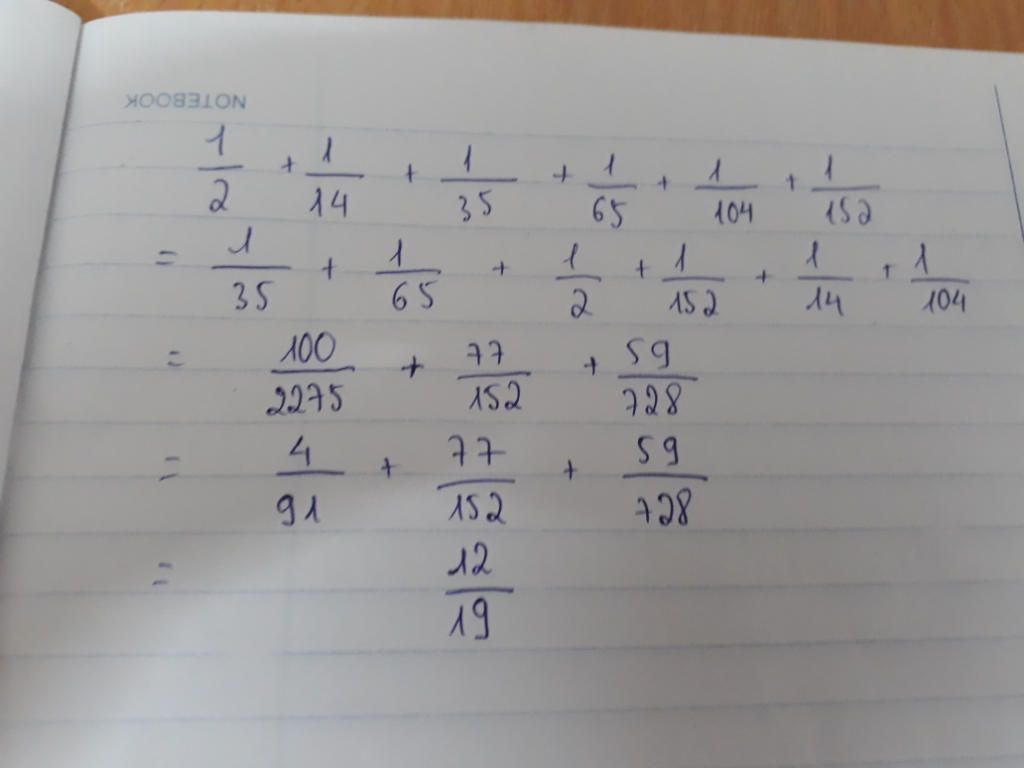 NOTEBOOK
1/2 + 1/14 + 1/35 + 1/65 + 1/104 + 1/152
= 1/35 + 1/65 + 1/2 + 1/152 + 1/14 + 1/104
= 100/2275 + 77/152 + 59/728
= 4/91 + 77/152 + 59/728
= 12/19